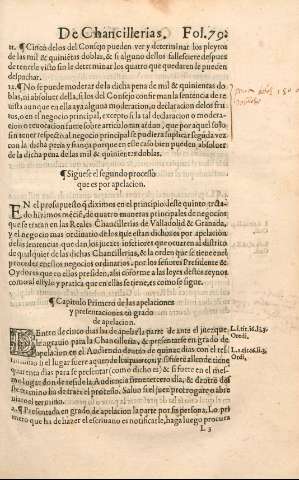 De Chancillerias. Fol. 79.
11. ¶ Cinco delos del Consejo pueden ver y determinar los pleytos
de las mil & quinientas doblas, & si alguno dellos fallesciere despues
de tenerle visto sin le determinar los quatro que quedaren le pueden
despachar.
12. ¶ No se puede moderar de la dicha pena de mil & quinientas do-
blas, ni absoluer della, si los del Consejo confirman la sentencia de re-
uista aunque en ella aya alguna moderacion, o declaracion delos fru-
tos, o en el negocio principal, excepto si la tal declaracion o modera-
cion o reuocacion fuere sobre articulo tan
con la dicha pena y fiança porque en este caso bien pueden absoluer
de la dicha pena de las mil & quinientas doblas.
¶ Siguese el segundo processo
que es por apelacion.
EN el presupuesto q diximos en el principio deste quinto tracta-
do hizimos mēciō, de quatro maneras principales de negocios
que se tratan en las Reales Chancillerias de Valladolid & Granada,
y el negocio mas ordinario de los que estan dichos es por apelacion
de las sentencias que dan los juezes inferiores que ocurren al districto
de qualquier de las dichas Chancillerias, & la orden que se tiene en el
proceder en los negocios ordinarios, por los señores Presidente &
Oydores que en ellos presiden, assi conforme a las leyes destos reynos
como al estylo y pratica que en ellas se tiene, es como se sigue.
¶ Capitulo Primero de las apelaciones
y presentaciones en grado
de apelacion.
DEntro de cinco dias ha de apelar la parte de ante el juez que
le agrauio para la Chancilleria, & presentarse en grado de
apelacion en el Audiencia dentro de quinze dias con el tes-
timonio si el lugar fuere aquende los puertos y si fuere allende tiene
quarenta dias para se presentar (como dicho es) & si fuere en el mes-
mo lugar donde reside la Audiencia tiene tercero dia, & dentro del
termino ha de traer el processo. Saluo si el juez prorrogare o abre
uiare el termino.
2. ¶ Presentada en grado de apelacion la parte por su persona, Lo pri
mero que ha de hazer el escriuano es notificarle, haga luego procura
L 3